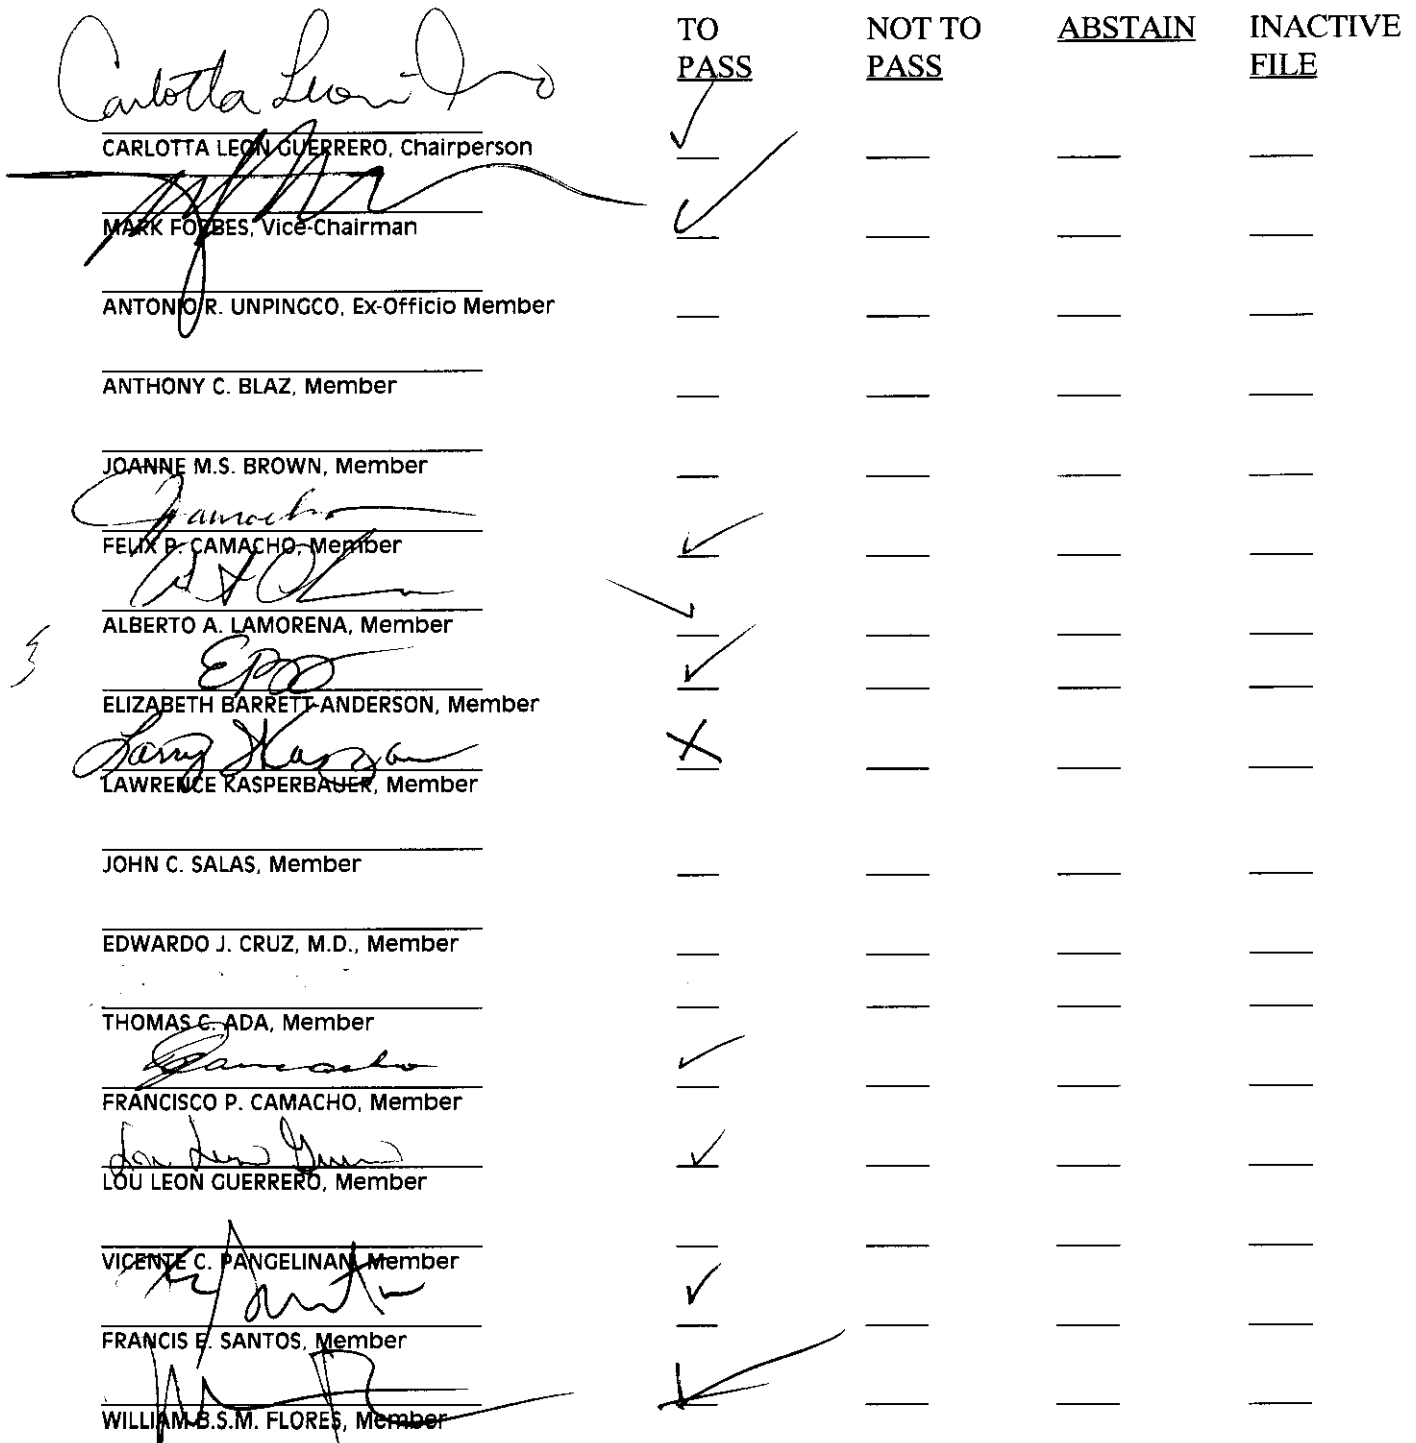 TO NOT TO ABSTAIN INACTIVE
PASS PASS FILE
Carlotta Leon
CARLOTTA LEON GUERRERO, Chairperson
MARK FORBES, Vice-Chairman
ANTONIO R. UNPINGCO, Ex-Officio Member
ANTHONY C. BLAZ, Member
JOANNE M.S. BROWN, Member
Camacho
FELIX P. CAMACHO, Member
ALBERTO A. LAMORENA, Member
ELIZABETH BARRETT-ANDERSON, Member
Larry
LAWRENCE KASPERBAUER, Member
JOHN C. SALAS, Member
EDWARDO J. CRUZ, M.D., Member
THOMAS C. ADA, Member
Camacho
FRANCISCO P. CAMACHO, Member
Lou Leon
LOU LEON GUERRERO, Member
VICENTE C. PANGELINAN, Member
FRANCIS E. SANTOS, Member
WILLIAM B.S.M. FLORES, Member